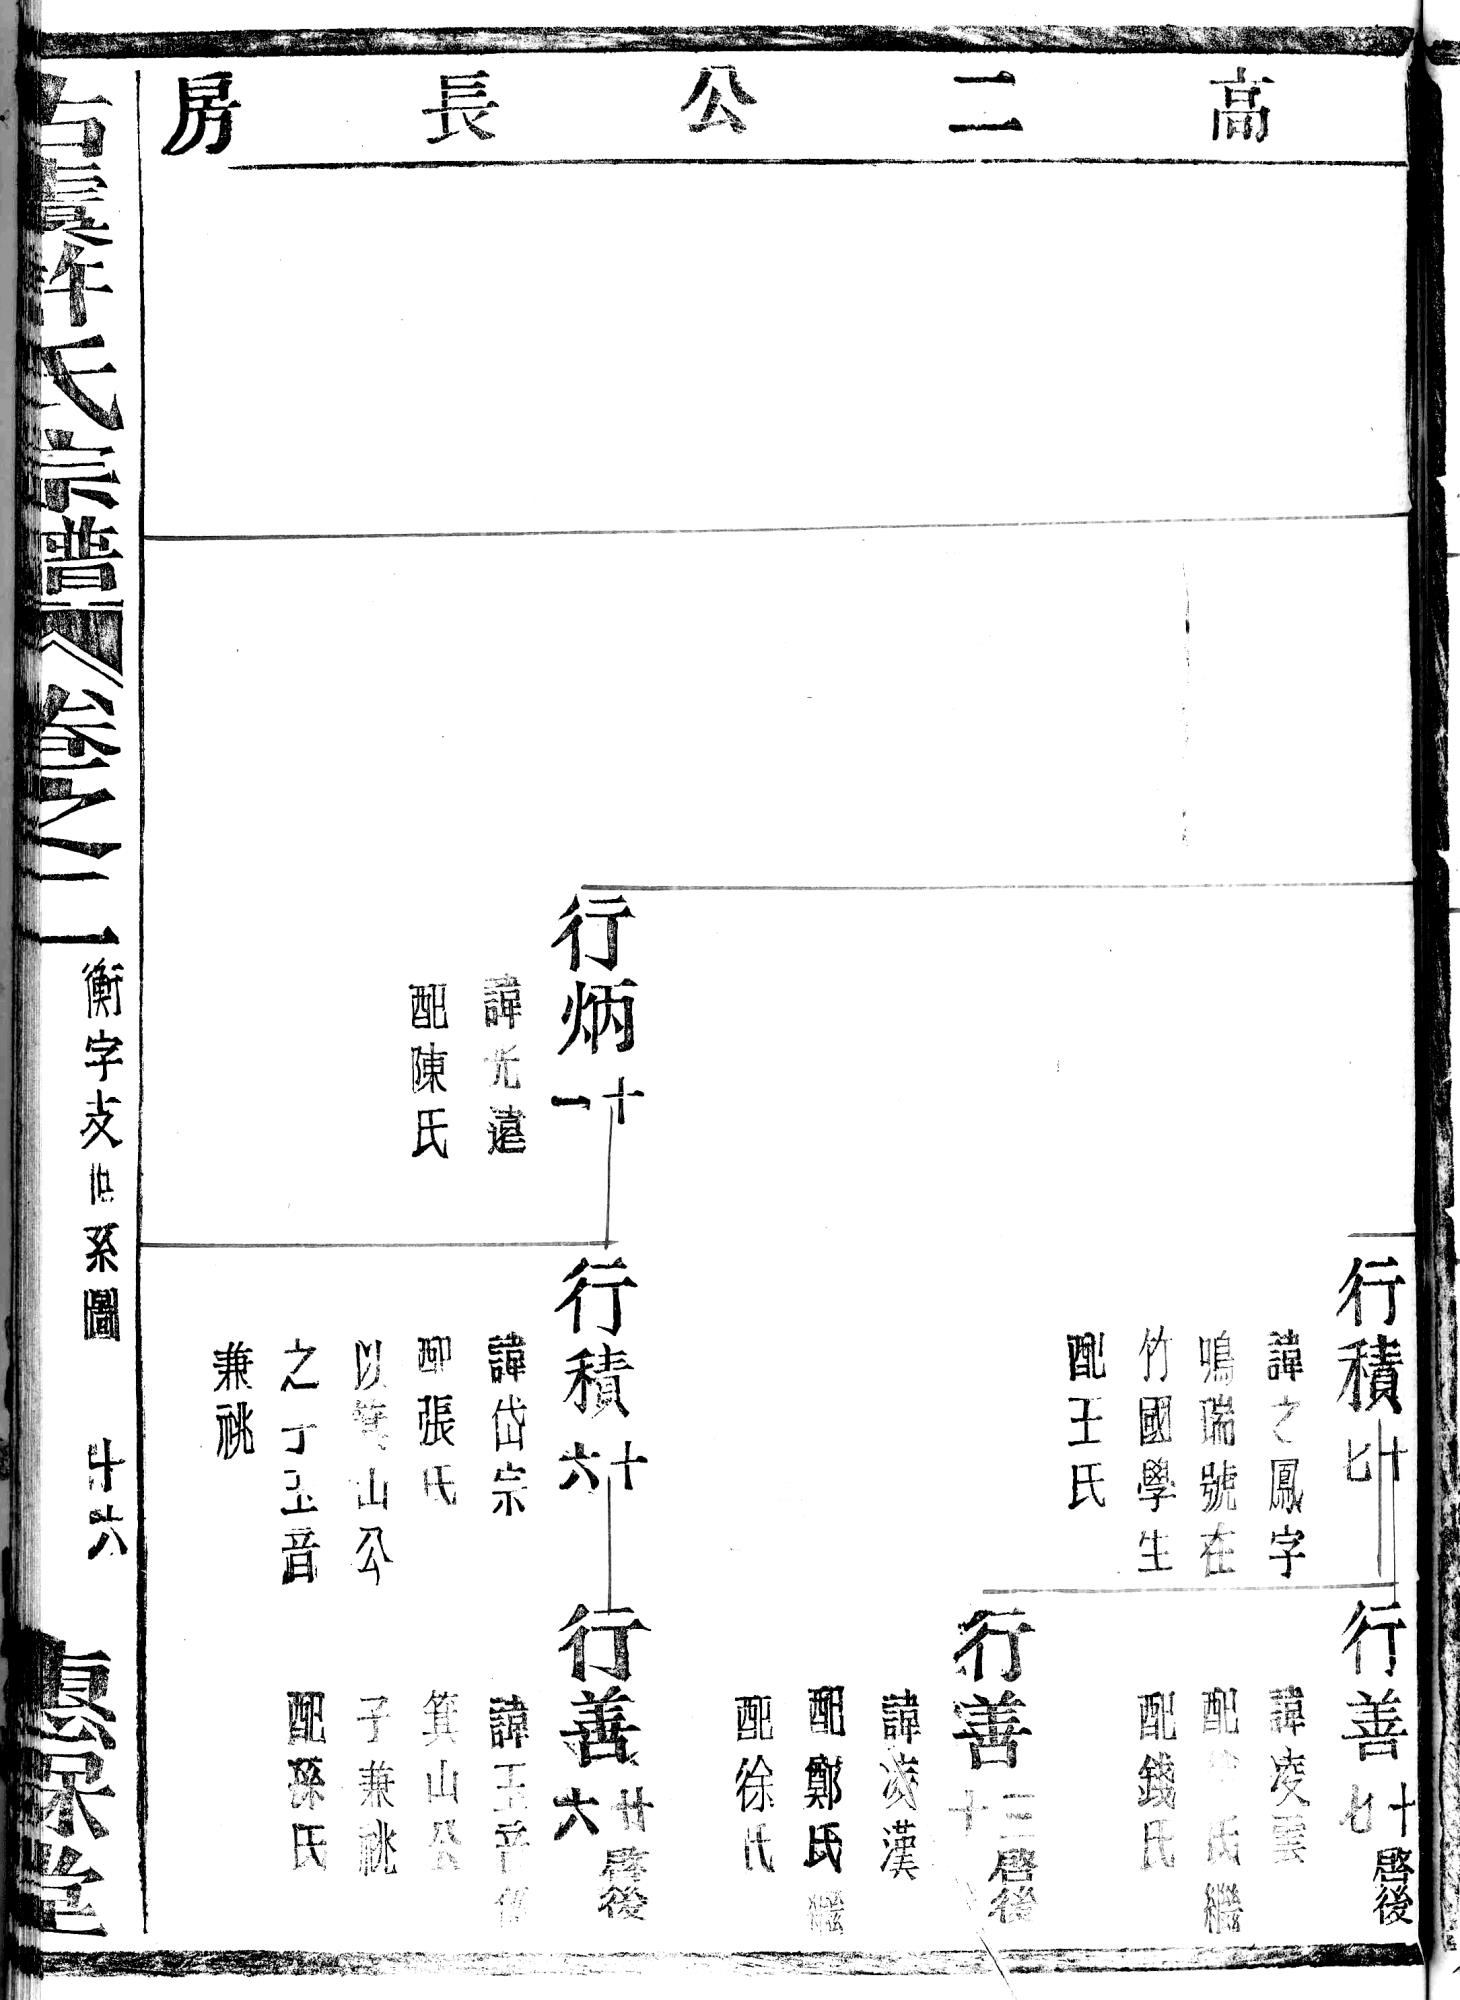 高二公長房
行積十七
諱之鳳字
鳴瑞號在
竹國學生
配王氏
行善十七
啓後
諱凌雲
配氏繼
配錢氏
行善三十
啓後
諱凌漢
配鄭氏繼
配徐氏
行炳十一
諱光遠
配陳氏
行積十六
諱岱宗
配張氏
以箕山公
之子玉音
兼祧
行善廿六
啓後
諱玉音
箕山公
子兼祧
配孫氏
古虞許氏宗譜
卷之二
衡字支世系圖
十六
惠保堂